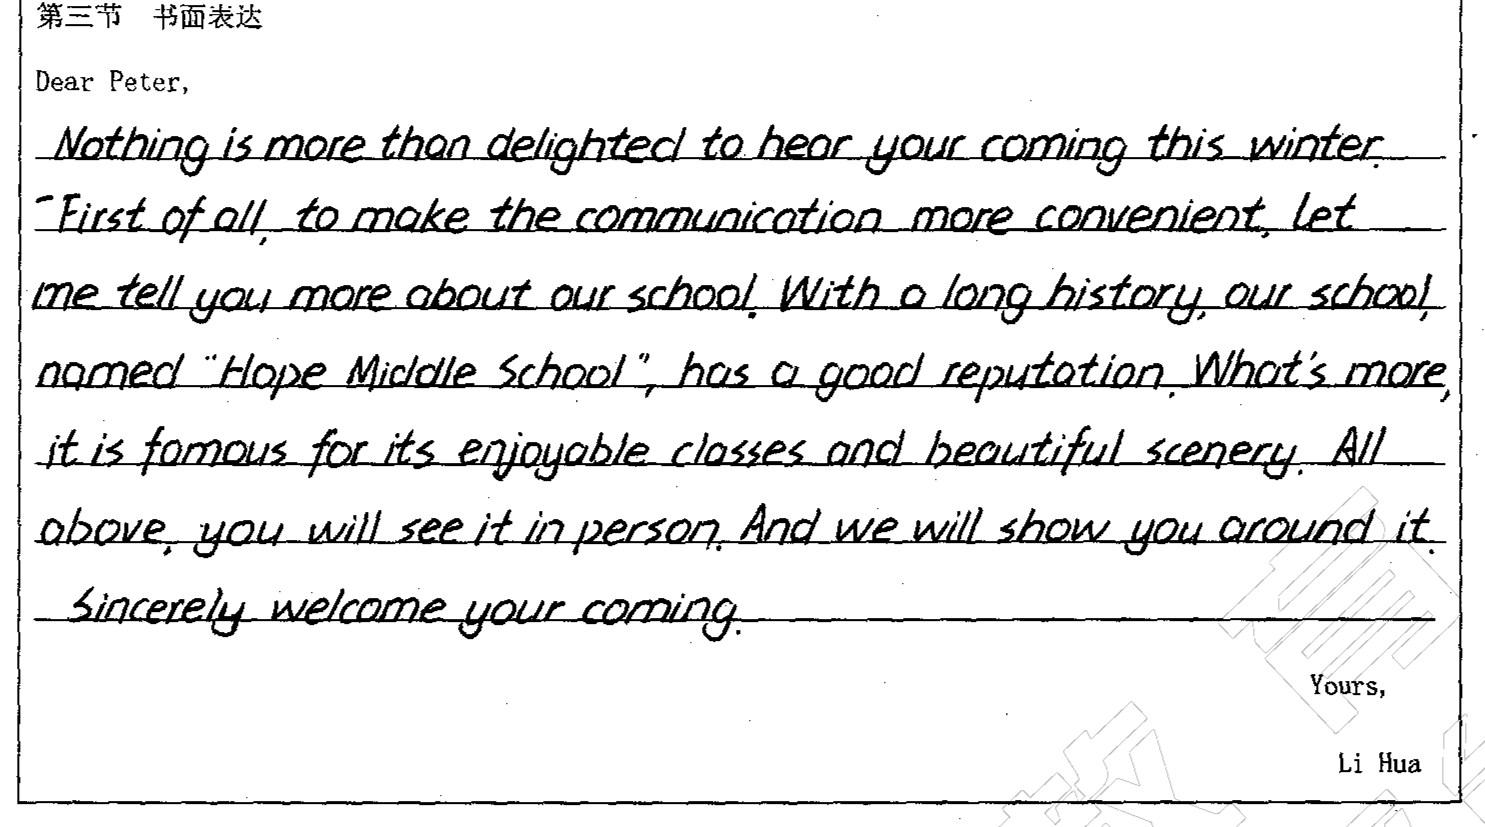 第三节 书面表达
Dear Peter,
Nothing is more than delighted to hear your coming this winter.
First of all, to make the communication more convenient, let
me tell you more about our school. With a long history, our school,
named "Hope Middle School", has a good reputation. What's more,
it is famous for its enjoyable classes and beautiful scenery. All
above, you will see it in person. And we will show you around it.
Sincerely welcome your coming.
Yours,
Li Hua